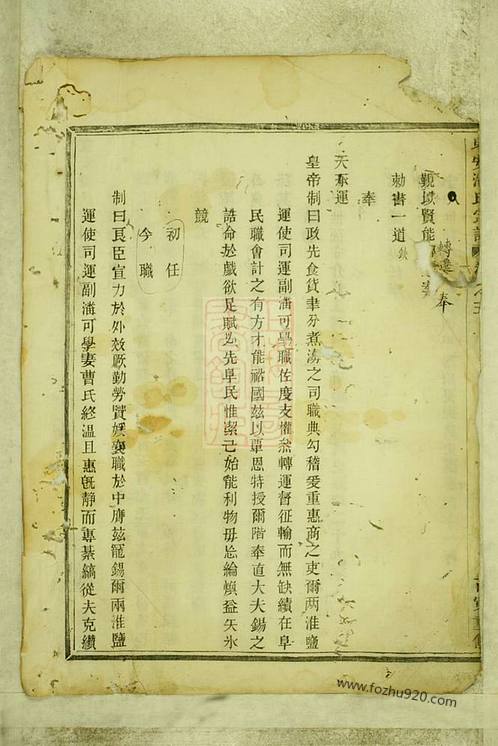 觀以賢能
勅書一道
奉
天承運
皇帝制曰政先食貨聿分煮海之司職典勾稽爰重惠商之吏爾两淮鹽
運使司運副可學職佐度支權叅轉運督征輸而無缺績在阜
民職會計之有方才能裕國兹以覃恩特授爾階奉直大夫錫之
誥命於戱欲足賦必先阜民惟潔己始能利物毋忘綸煥益矢氷
競
初任
今職
制曰良臣宣力於外效厥勤勞賢媛襄職於中膺兹寵錫爾兩淮鹽
運使司運副可學妻曹氏終温且惠旣靜而專綦縞從夫克纘
www.fozhu920.com